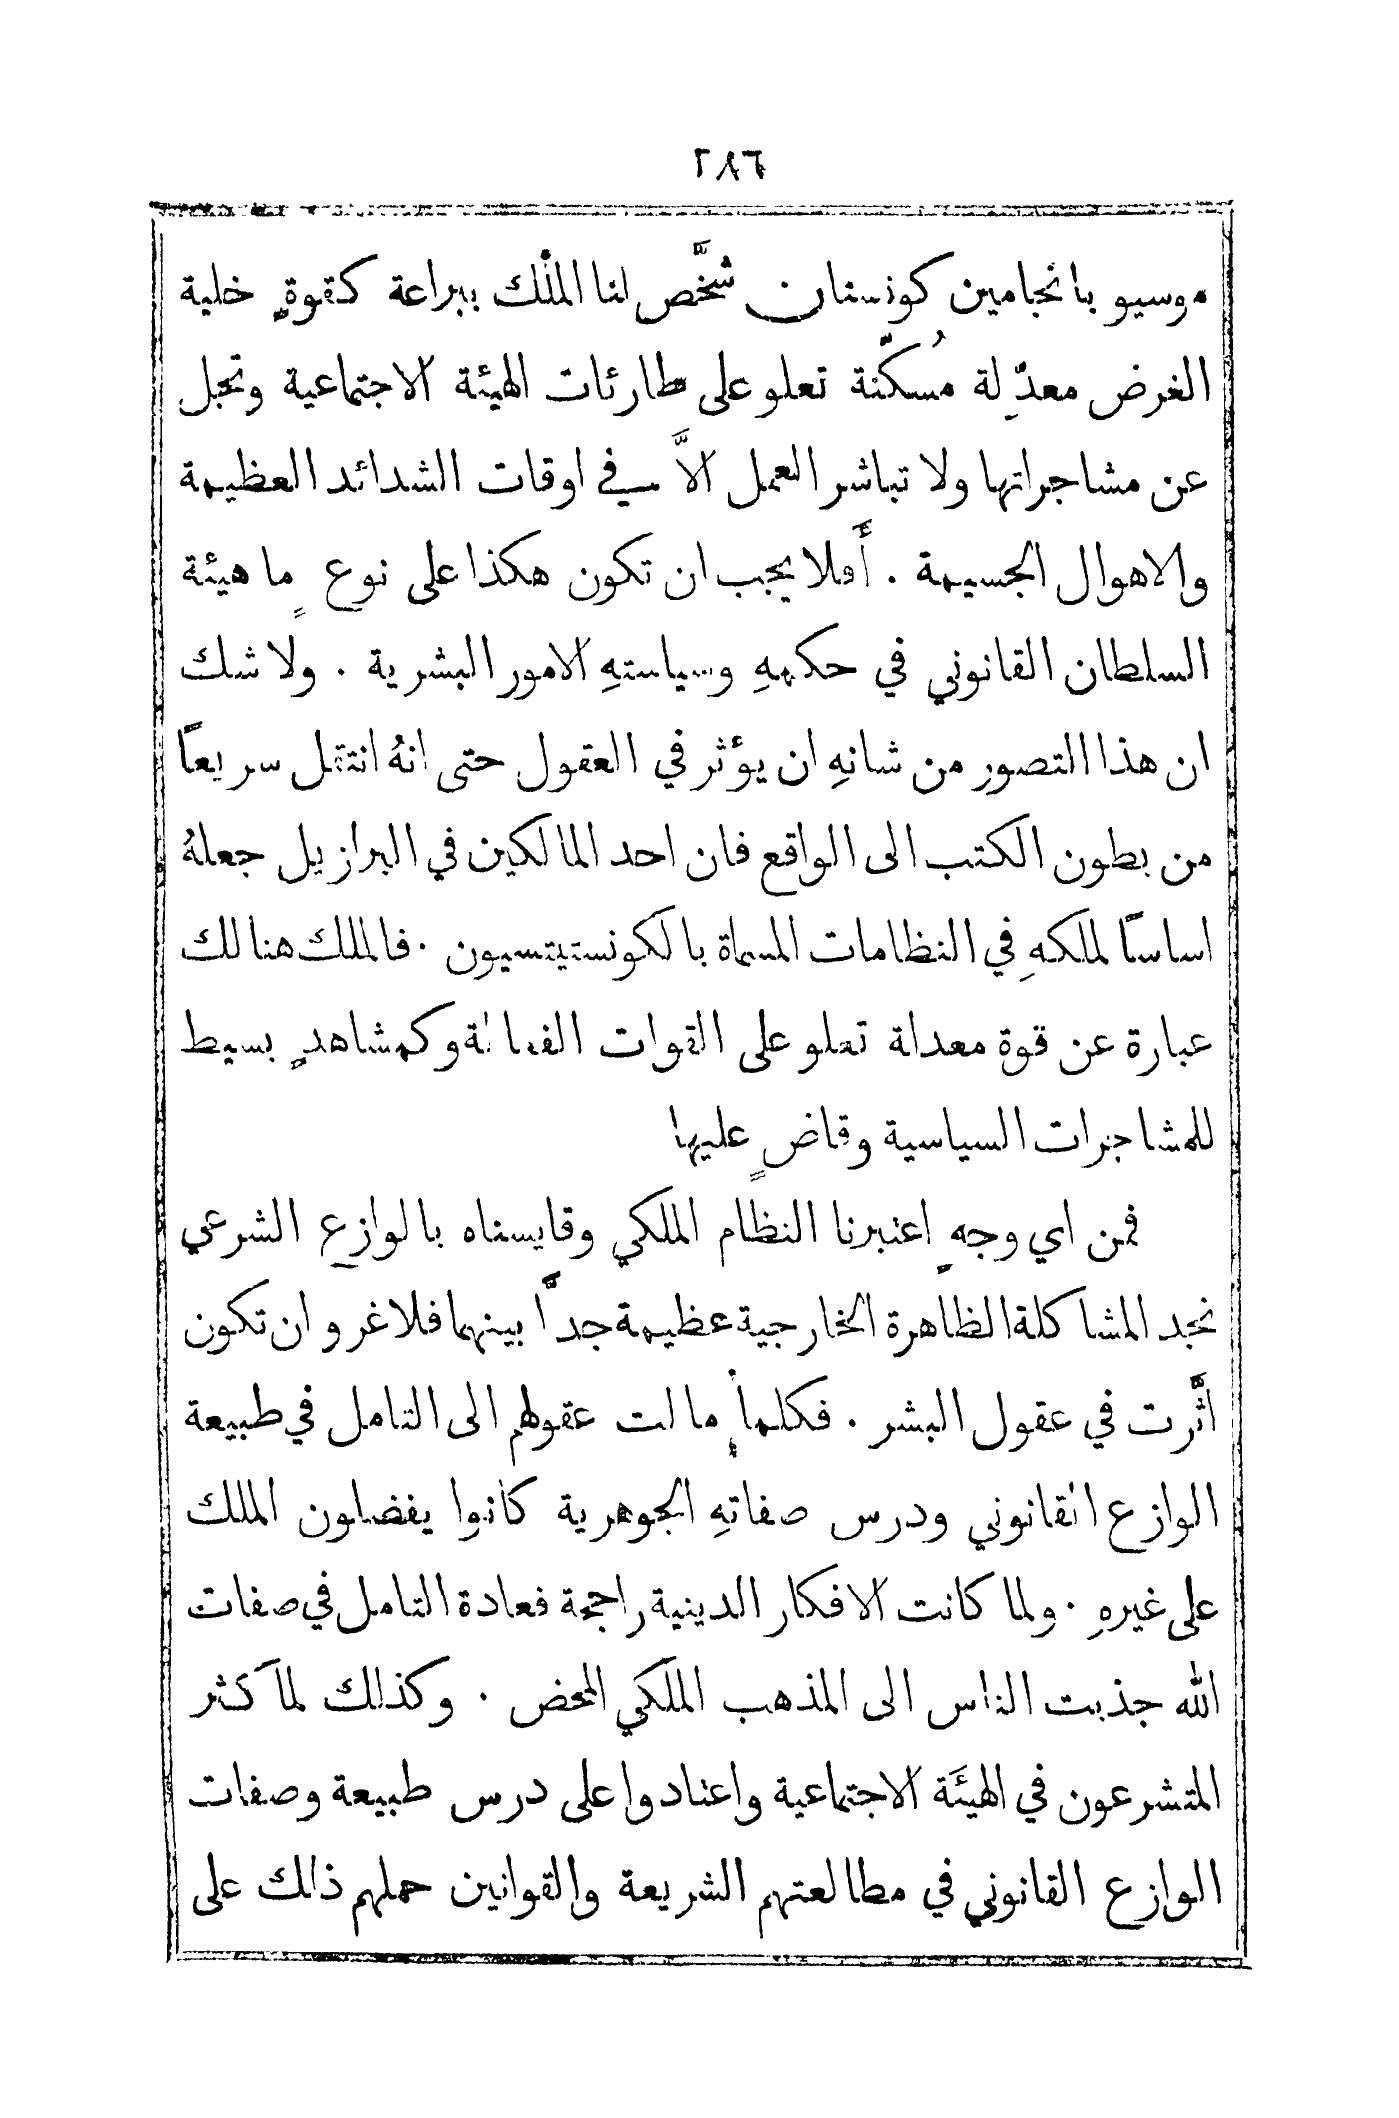 ٢٨٦
موسيو بانجامين كونستان شخَّص لنا الملْك ببراعة كقوةٍ خلية
الغرض معدِّلة مُسكّنة تعلو على طارئات الهيئة الاجتماعية وتجل
عن مشاجراتها ولا تباشر العمل الاَّ في اوقات الشدائد العظيمة
والاهوال الجسيمة . أَفلا يجب ان تكون هكذا على نوعٍ ما هيئة
السلطان القانوني في حكمهِ وسياستهِ الامور البشرية . ولا شك
ان هذا التصور من شانهِ ان يؤثر في العقول حتى انهُ انتقل سريعاً
من بطون الكتب الى الواقع فان احد المالكين في البرازيل جعلهُ
اساساً لملكهِ في النظامات المسماة بالكونستيتسيون . فالملك هنالك
عبارة عن قوة معدلة تعلو على القوات الفعالة وكمشاهدٍ بسيط
للمشاجرات السياسية وقاضٍ عليها
فمن اي وجهٍ اعتبرنا النظام الملكي وقايسناه بالوازع الشرعي
نجد المشاكلة الظاهرة الخارجية عظيمة جدًّا بينهما فلا غرو ان تكون
اثَّرت في عقول البشر . فكلما مالت عقولهم الى التامل في طبيعة
الوازع القانوني ودرس صفاتهِ الجوهرية كانوا يفضلون الملك
على غيرهِ . ولما كانت الافكار الدينية راجحة فعادة التامل في صفات
الله جذبت الناس الى المذهب الملكي المحض . وكذلك لما كثر
المتشرعون في الهيئَة الاجتماعية واعتادوا على درس طبيعة وصفات
الوازع القانوني في مطالعتهم الشريعة والقوانين حملهم ذلك على